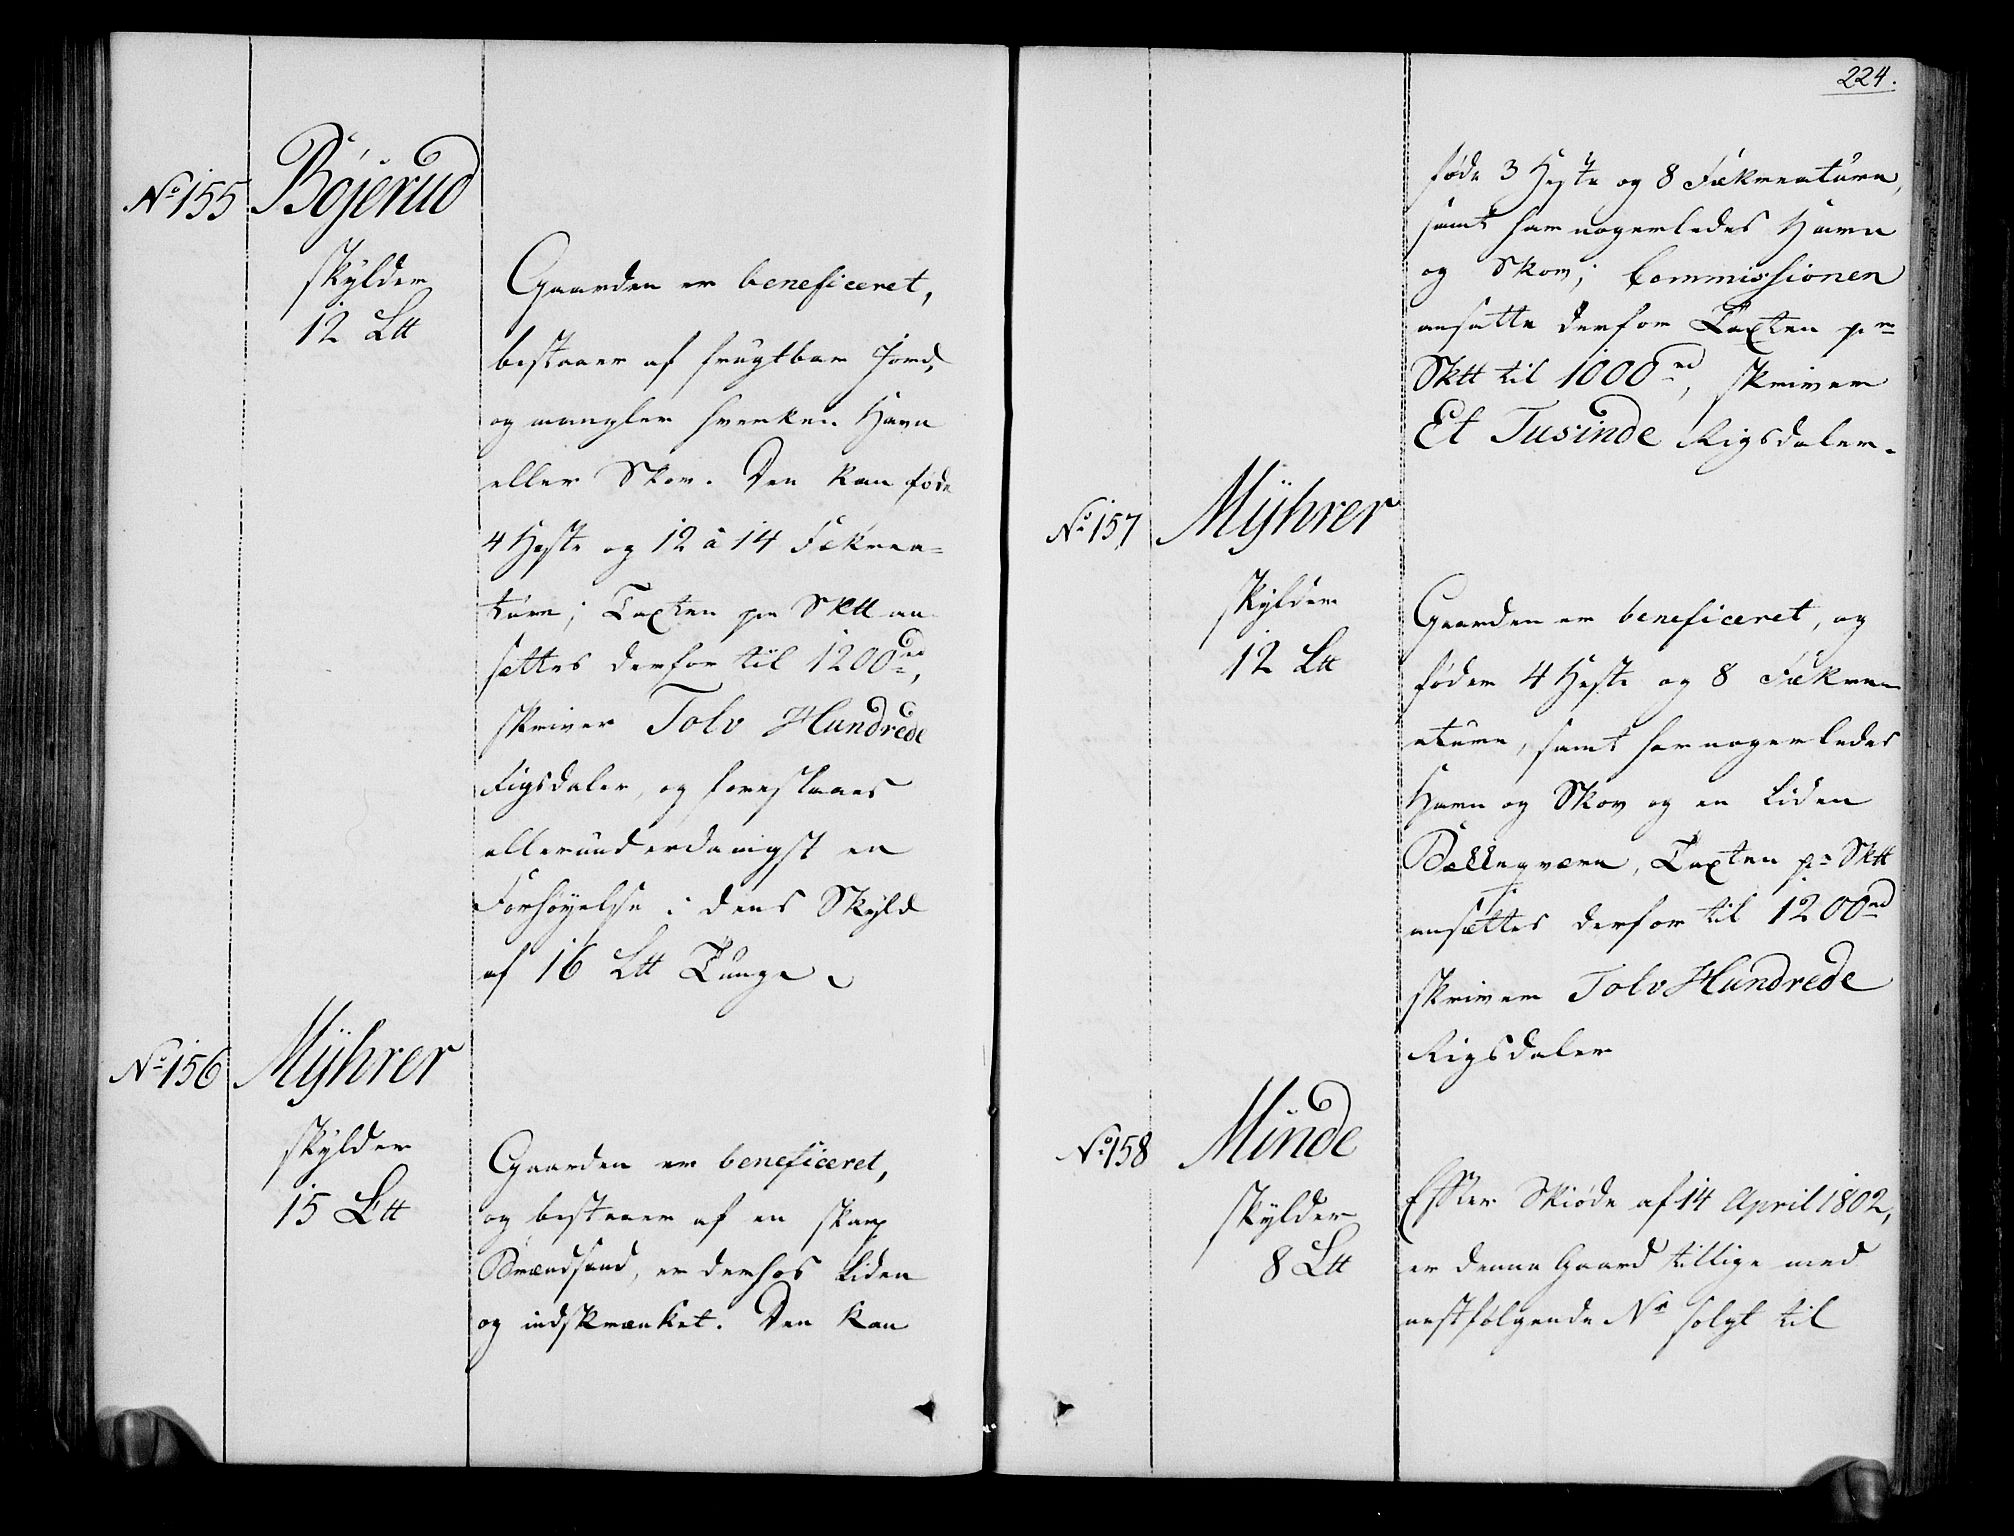 No 155
Böjerud
skylder
12 Ltt
Gaarden er beneficeret,
bestaaer af frugtbar Jord,
og mangler hverken Havn
eller Skov. Den kan føde
4 Heste og 12 à 14 Fækrea=
turer; Taxten pr Sktt an
settes derfor til 1200 rd,
skriver Tolv Hundrede
Rigsdaler, og foreslaaes
allerunderdanigst en
Forhøyelse i dens Skyld
af 16 Ltt Tunge
No 156
Mÿhrer
skylder
15 Ltt
Gaarden er beneficeret,
og bestaaer af en skarp
Brændsand, er derhos liden
og indskrænket. Den kan
224.
føde 3 Heste og 8 Fækreaturer,
samt har nogenledes Havn
og Skov; Commissionen
ansatte derfor Taxten pr
Sktt til 1000 rd, skriver
Et Tusinde Rigsdaler.
No 157
Mÿhrer
skylder
12 Ltt
Gaarden er beneficeret, og
føder 4 Heste og 8 Fækre
aturer, samt har nogenledes
Havn og Skov og en liden
Bækkeqværn, Taxten pr Sktt
ansættes derfor til 1200 rd
skriver Tolv Hundrede
Rigsdaler
No 158
Minde
skylder
8 Ltt
Efter Skiøde af 14 April 1802,
er denne Gaard tillige med
nestfølgende Nr solgt til